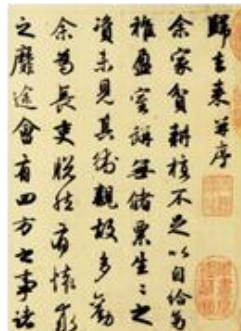 歸去來并序
余家貧耕植不足以自給幼
稚盈室缾無儲粟生生之
資未見其術親故多勸
余為長吏脫然有懷求
之靡途會有四方之事諸